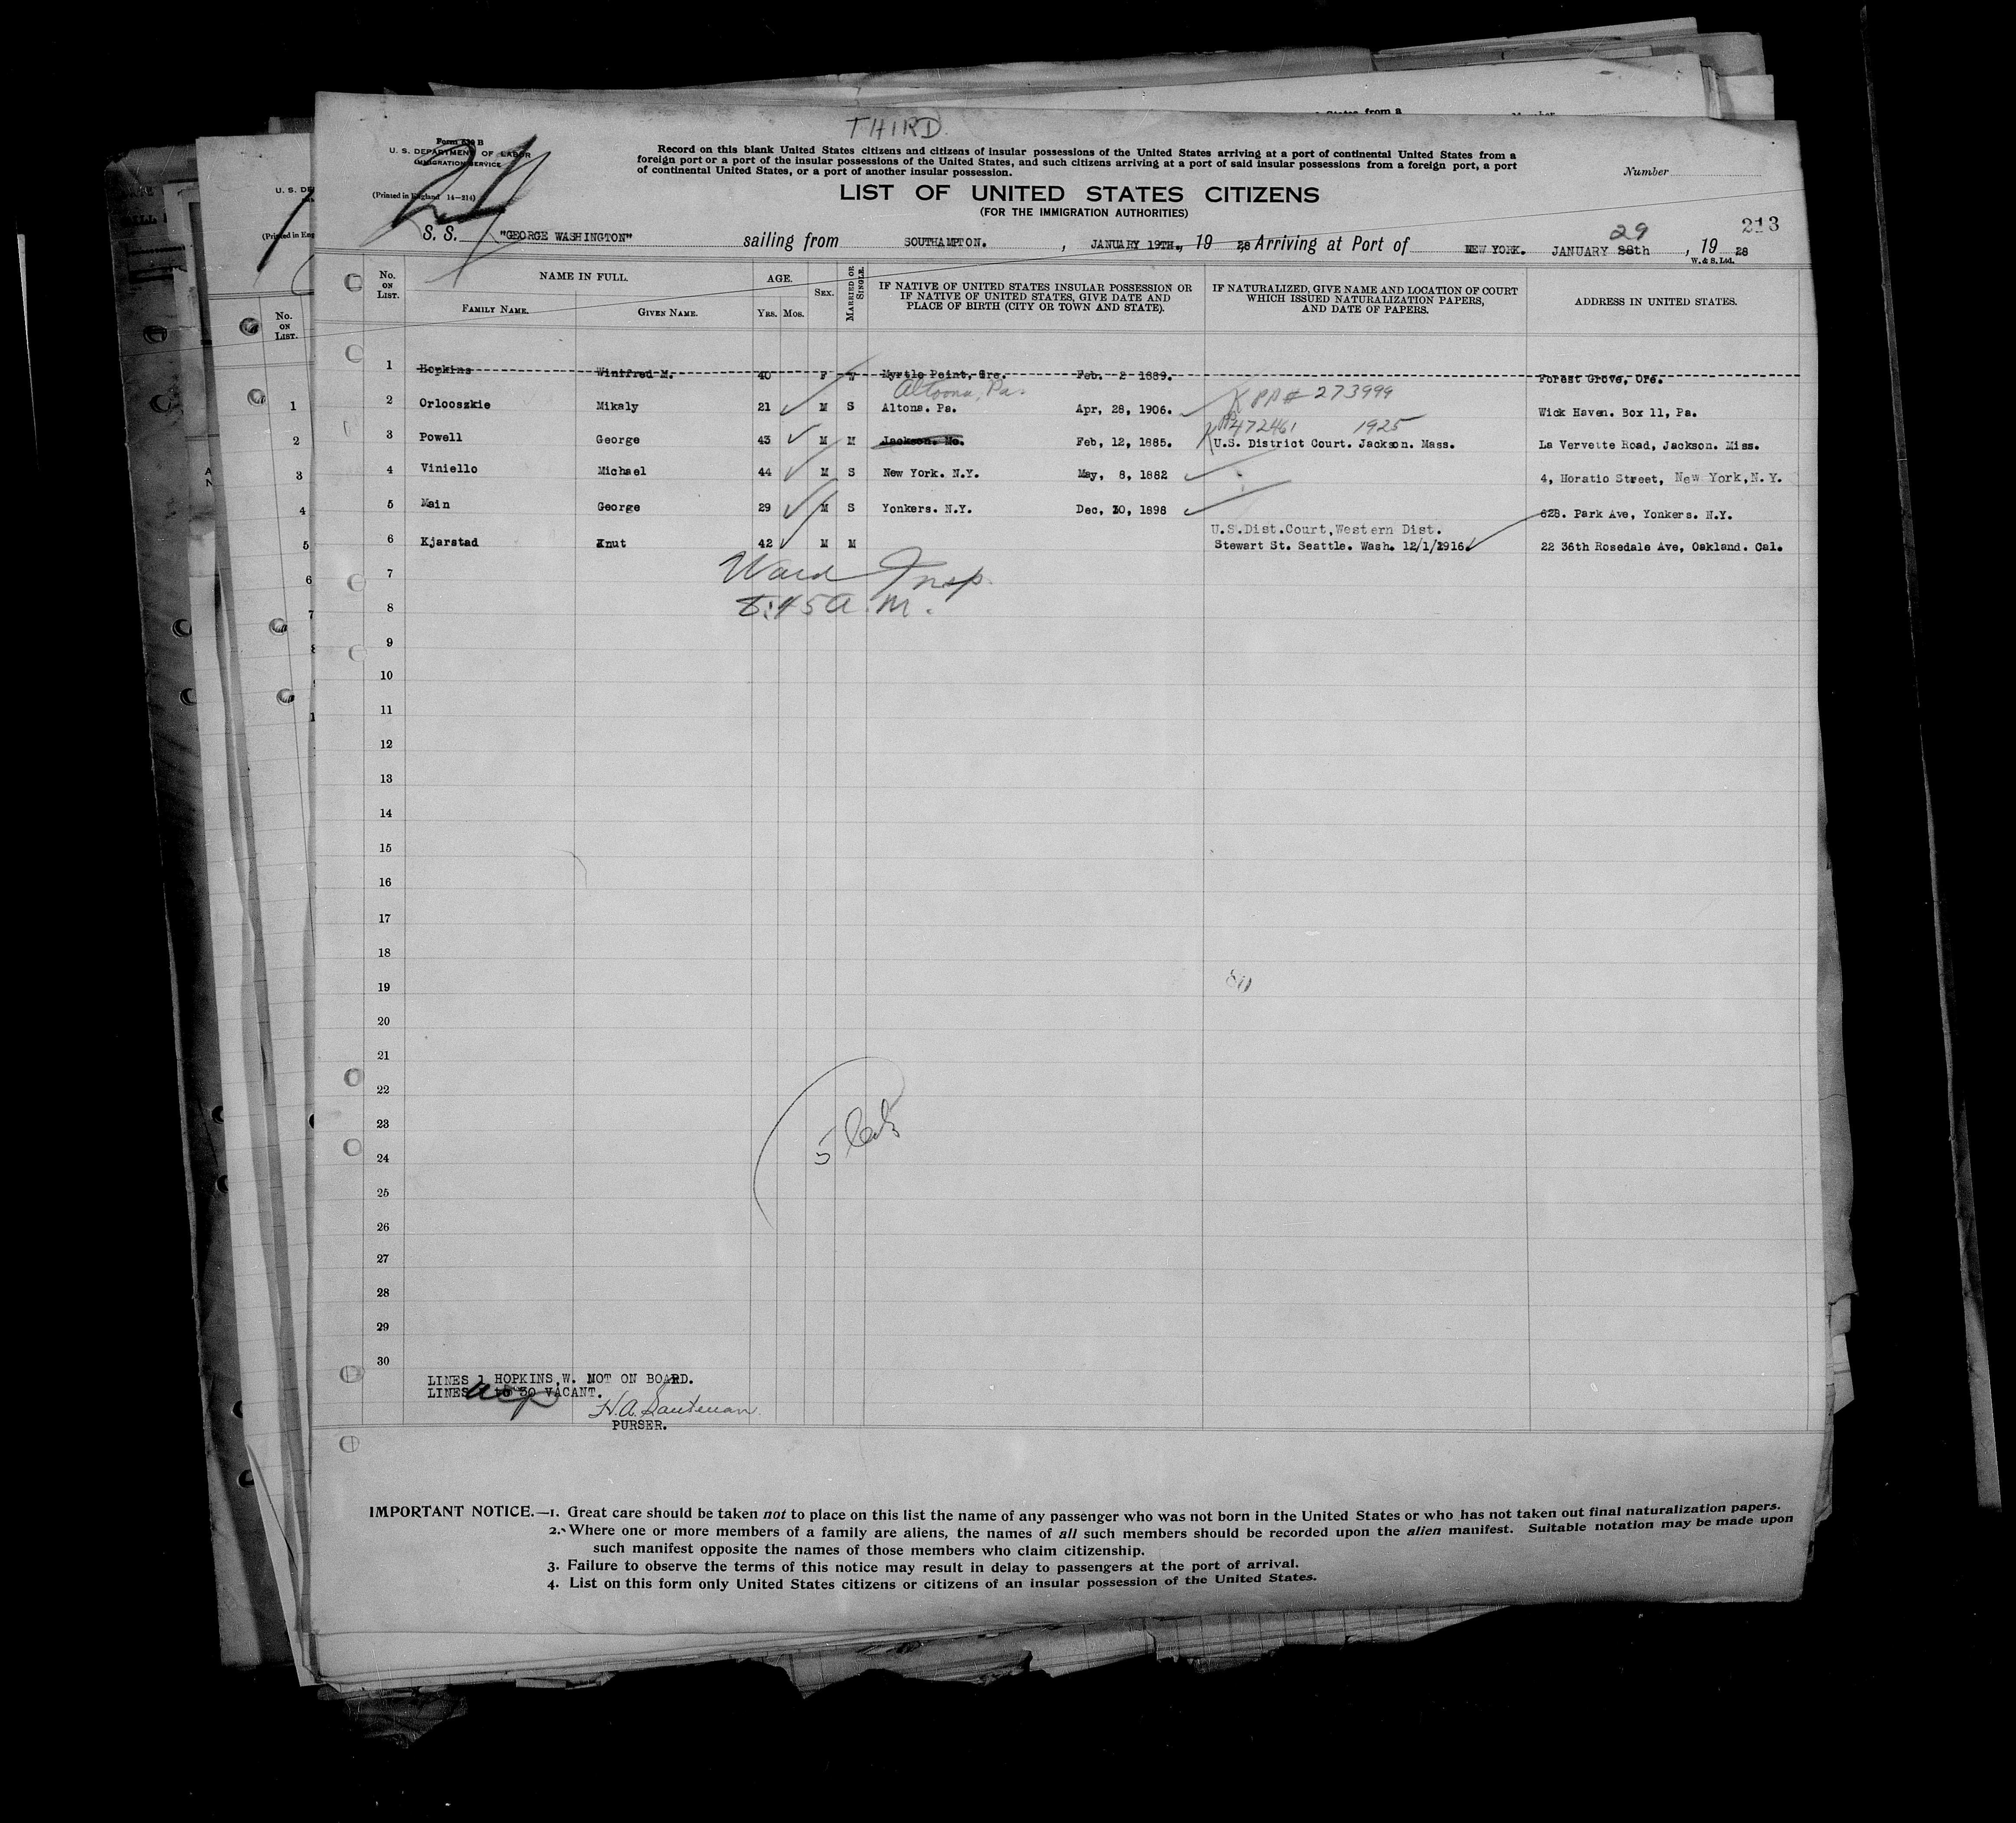 THIRD.
Form 630 B
U. S. DEPARTMENT OF LABOR
IMMIGRATION SERVICE
(Printed in England 14—214)
Record on this blank United States citizens and citizens of insular possessions of the United States arriving at a port of continental United States from a
foreign port or a port of the insular possessions of the United States, and such citizens arriving at a port of said insular possessions from a foreign port, a port
of continental United States, or a port of another insular possession.
Number
LIST OF UNITED STATES CITIZENS
(FOR THE IMMIGRATION AUTHORITIES)
213
29
S. S. "GEORGE WASHINGTON" sailing from SOUTHAMPTON. , JANUARY 19TH., 19 28 Arriving at Port of NEW YORK. JANUARY 28th , 19 28
W. & S. Ltd.
No. ON LIST. NAME IN FULL. AGE. SEX. MARRIED OR SINGLE. IF NATIVE OF UNITED STATES INSULAR POSSESSION OR IF NATIVE OF UNITED STATES, GIVE DATE AND PLACE OF BIRTH (CITY OR TOWN AND STATE). IF NATURALIZED, GIVE NAME AND LOCATION OF COURT WHICH ISSUED NATURALIZATION PAPERS, AND DATE OF PAPERS. ADDRESS IN UNITED STATES.
FAMILY NAME. GIVEN NAME. YRS. MOS.
1 Hopkins Winifred M. 40 F W Myrtle Point, Ore. Feb. 2 1889. Forest Grove, Ore.
Altoona, Pa. PP# 273999
2 Orlooszkie Mikaly 21 M S Altona. Pa. Apr, 28, 1906. Wick Haven. Box 11, Pa.
PP 472461 1925
3 Powell George 43 M M Jackson. Mo. Feb, 12, 1885. U.S. District Court. Jackson. Mass. La Vervette Road, Jackson. Miss.
4 Viniello Michael 44 M S New York. N.Y. May, 8, 1882 4, Horatio Street, New York, N.Y.
5 Main George 29 M S Yonkers. N.Y. Dec, 30, 1898 628. Park Ave, Yonkers. N.Y.
U.S.Dist.Court,Western Dist.
6 Kjarstad Knut 42 M M Stewart St. Seattle. Wash. 12/1/1916. 22 36th Rosedale Ave, Oakland. Cal.
7
Ward Insp.
8
8:45 A.M.
9
10
11
12
13
14
15
16
17
18
19
20
21
22
23
24
25
26
27
28
29
30
LINES 1 HOPKINS,W. NOT ON BOARD.
LINES to 30 VACANT.
PURSER.
IMPORTANT NOTICE.—1. Great care should be taken not to place on this list the name of any passenger who was not born in the United States or who has not taken out final naturalization papers.
2. Where one or more members of a family are aliens, the names of all such members should be recorded upon the alien manifest. Suitable notation may be made upon
such manifest opposite the names of those members who claim citizenship.
3. Failure to observe the terms of this notice may result in delay to passengers at the port of arrival.
4. List on this form only United States citizens or citizens of an insular possession of the United States.